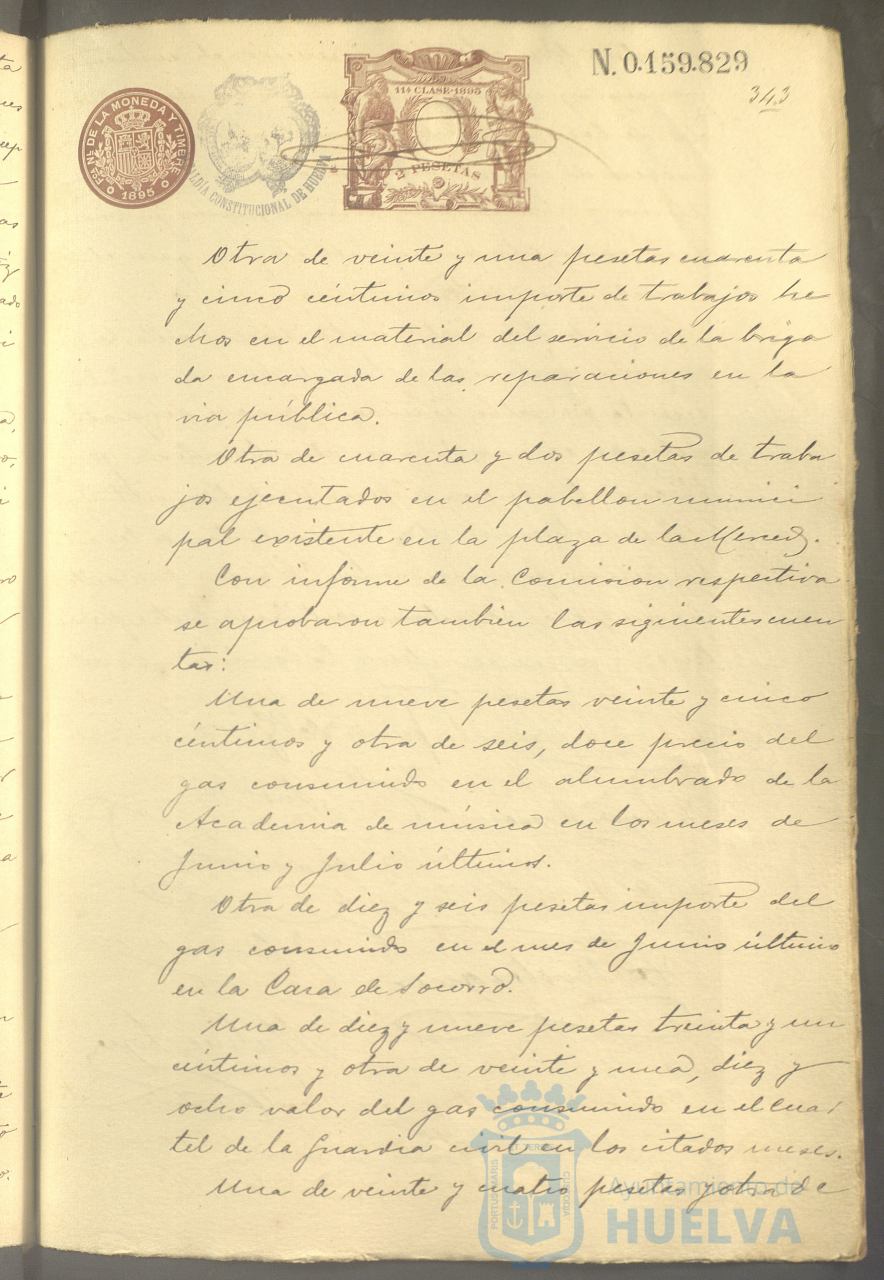 N. 0.159.829
343
11ª CLASE-1895
2 PESETAS
NAL DE LA MONEDA Y TIMBRE
1895
ALDIA CONSTITUCIONAL DE HUELVA
Otra de veinte y una pesetas cuarenta
y cinco céntimos importe de trabajos he
chos en el material del servicio de la briga
da encargada de las reparaciones en la
via pública.
Otra de cuarenta y dos pesetas de traba
jos ejecutados en el pabellon munici
pal existente en la plaza de la Merced.
Con informe de la Comision respectiva
se aprobaron tambien las siguientes cuen
tas:
Una de nueve pesetas veinte y cinco
céntimos y otra de seis, doce precio del
gas consumido en el alumbrado de la
Academia de música en los meses de
Junio y Julio últimos.
Otra de diez y seis pesetas importe del
gas consumido en el mes de Junio último
en la Casa de Socorro.
Una de diez y nueve pesetas treinta y un
céntimos y otra de veinte y una, diez y
ocho valor del gas consumido en el cuar
tel de la Guardia civil en los citados meses.
Una de veinte y cuatro pesetas y otra de
PORTUS MARIS
CUSTODIA
Ayuntamiento de
HUELVA